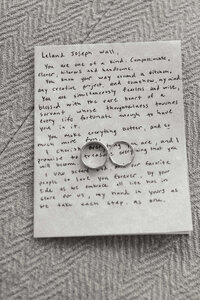 Leland Joseph Wall,
You are one of a kind: Compassionate,
clever, hilarious and handsome.
You know your way around a kitchen,
any creative project, and somehow, my mind.
You are simultaneously fearless and wise,
blessed with the rare heart of a
servant whose thoughtfulness touches
every life fortunate enough to have
you in it.
You make everything better, and so
much more fun.
I cherish you are, and I
promise to treasure everything that you
will become.
I vow favorite
people to love you forever, by your
side as we embrace all life has in
store for us, my hand in yours as
we take each step. As one.